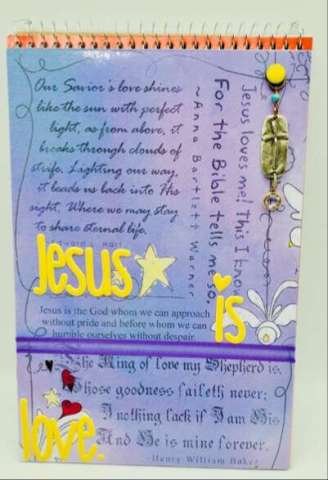 Our Savior's love shines
like the sun with perfect
light, as from above, it
breaks through clouds of
strife. Lighting our way,
it leads us back into His
sight, Where we may stay
to share eternal life.
Jesus loves me! This I know
For the Bible tells me so.
~Anna Bartlett Warner
Jesus
is
Jesus is the God whom we can approach
without pride and before whom we can
humble ourselves without despair.
The King of love my Shepherd is,
Whose goodness faileth never;
I nothing lack if I am His
And He is mine forever.
-Henry William Baker
love.